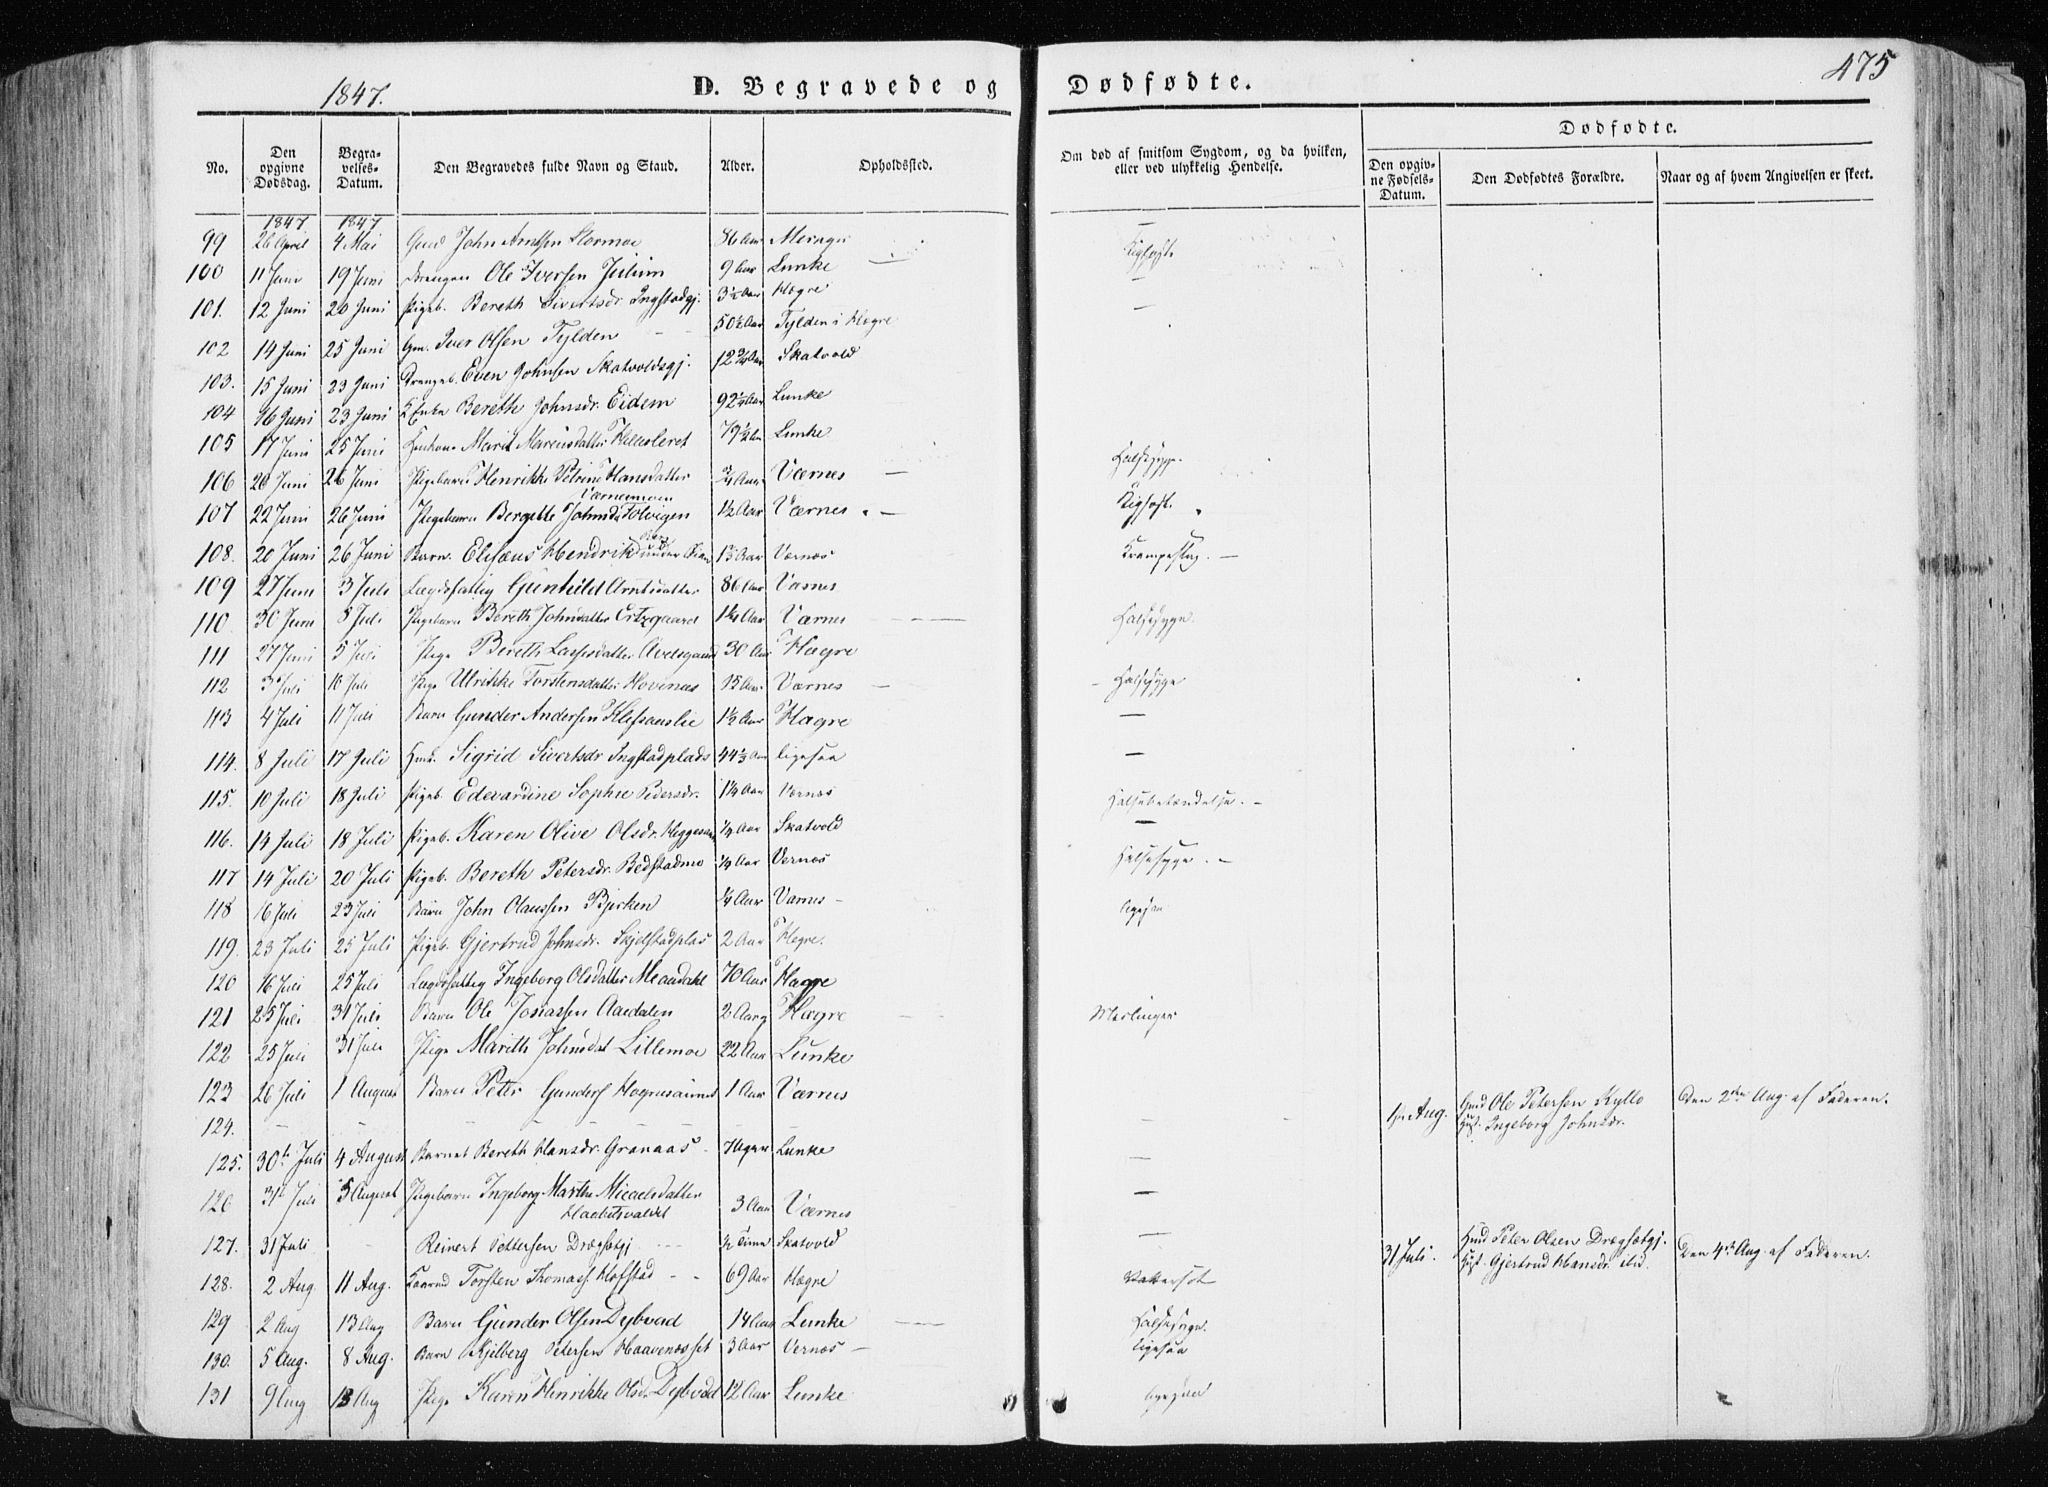 1847. D. Begravede og Dødfødte. 475
No. Den opgivne Dødsdag. Begravelses-Datum. Den Begravedes fulde Navn og Stand. Alder. Opholdssted. Om død af smitsom Sygdom, og da hvilken, eller ved ulykkelig Hendelse. Dødfødte.
Den opgivne Fødsels-Datum. Den Dødfødtes Forældre. Naar og af hvem Angivelsen er skeet.
1847 1847
99 26 April 4 Mai John Arntsen 86 Aar —
100 11 Juni 19 Juni Drengen Ole Iversen Julum 9 Aar Lunke —
101. 12 Juni 20 Juni Pigeb. Bereth Sivertsdr. Ingstadgj. 3½ Aar Hegre —
102 14 Juni 25 Juni Gm. Iver Olsen Fylden 50½ Aar Fylden i Hegre
103. 15 Juni 23 Juni Drengeb. Even Johnsen Skatvoldsgj. 12 Aar Skatvold
104 16 Juni 23 Juni Bereth Johnsdr. Eidem 92½ Aar Lunke
105 17 Juni 25 Juni Marit Marcusdatter 79½ Aar Lunke
106 20 Juni 26 Juni Pigebarn Henrikke Petrine Hansdatter Værnesmoen ¾ Aar Værnes — Halsesyge.
107 22 Juni 26 Juni Pigebarn Bergitte Johnsdr 1½ Aar Værnes
108. 20 Juni 26 Juni Barn Elisæus Hendrik Aar Værnes Krampeslag. —
109 27 Juni 3 Juli Lægdsfattig Gunhild Arntsdatter 86 Aar Værnes
110 30 Juni 8 Juli Pigebarn Bereth Johnsdatter 1¼ Aar Værnes Halsesyge.
111 27 Juni 5 Juli Pige Bereth Lassesdatter 30 Aar Hegre
112 3 Juli 10 Juli Pige Ulrikke Torstensdatter Hovenæs 15 Aar Værnes — Halsesyge
113 4 Juli 11 Juli Barn Gunder Andersen 1½ Aar Hegre —
114. 8 Juli 17 Juli Sigrid Sivertsdr Ingstadplads 44⅓ Aar ligesaa —
115. 10 Juli 18 Juli Pigeb. Edevardine Sophie Pedersdr. 1¼ Aar Værnes Halsebetændelse. —
116. 14 Juli 18 Juli Pigeb. Karen Olive Olsdr. ¼ Aar Skatvold —
117 14 Juli 20 Juli Pigeb. Bereth Petersdr. Bedstadmo ¼ Aar Vernes Halsesyge. —
118 16 Juli 23 Juli Barn John Olaussen Bjerken ¼ Aar Værnes — ligesaa
119. 23 Juli 25 Juli Pigeb. Gjertrud Johnsdr. Skjelstadplas 2 Aar Hegre.
120 16 Juli 25 Juli Lægdsfattig Ingeborg Olsdatter 70 Aar Hegre
121 25 Juli 31 Juli Barn Ole Jonassen Aaedalen 2 Aar Hegre — Meslinger
122 25 Juli 31 Juli Pige Marith Johnsdat Lillemoe 22 Aar Lunke
123 26 Juli 1 August Barn Peter Gunders 1 Aar Værnes
124. — — — — — 1ste Aug. Gmd Ole Petersen Kyllo Hust. Ingeborg Johnsdr. Den 2den Aug. af Faderen.
125. 30te Juli 4 August Barnet Bereth Hansdr. Granaas Lunke —
126 31te Juli 5 August Pigebarn Ingeborg Marta Micaelsdatter 3 Aar Værnes —
127. 31 Juli — Reinert Pettersen Drægsetgj ½ Time Skatvold — 31 Juli. Hmd Peter Olsen Drægsetgj. Hust. Gjertrud Hansdr. Den 4de Aug. af Faderen.
128. 2 Aug. 11 Aug. Torsten Thomass Hofstad 69 Aar Hegre Vattersot
129 2 Aug 13 Aug Barn Gunder Olsen Dybvad 14 Aar Lunke — Halsesyge.
130. 5 Aug. 8 Aug. Barn Petersen 3 Aar Vernes — ligesaa
131 9 Aug 13 Aug Pige Karen Henrikke Olsdr Dybvad 12 Aar Lunke ligesaa